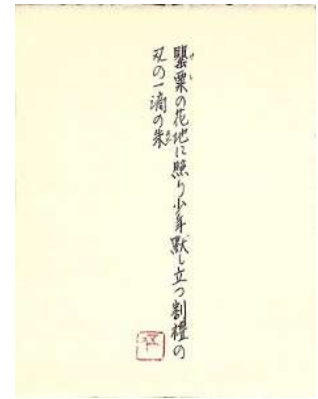 罌粟の花地に照り少年默し立つ割禮の
刄の一滴の朱